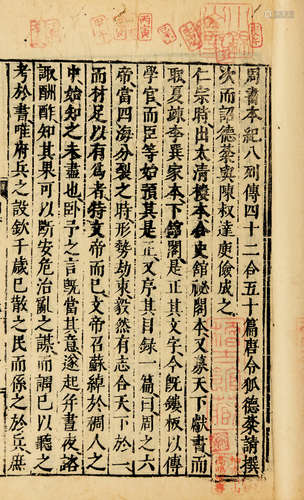 周書本紀八列傳四十二合五十篇唐令狐德棻請撰
次而詔德棻與陳叔達庾儉成之
仁宗時出太清樓本合史館祕閣本又募天下獻書而
取夏竦李巽家本下館閣是正其文字今既鏤板以傳
學官而臣等始預其是正又序其目録一篇曰周之六
帝當四海分裂之時形勢劫束毅然有志合天下於一
而材足以有爲者特文帝而已文帝召蘇綽於稠人之
中始知之未盡也卧予之言既當其意遂起并晝夜諮
諏酬酢知其果可以斷安危治亂之謀而詘己以聽之
考於書唯府兵之設斂千歳已散之民而係之於兵庶
丙寅